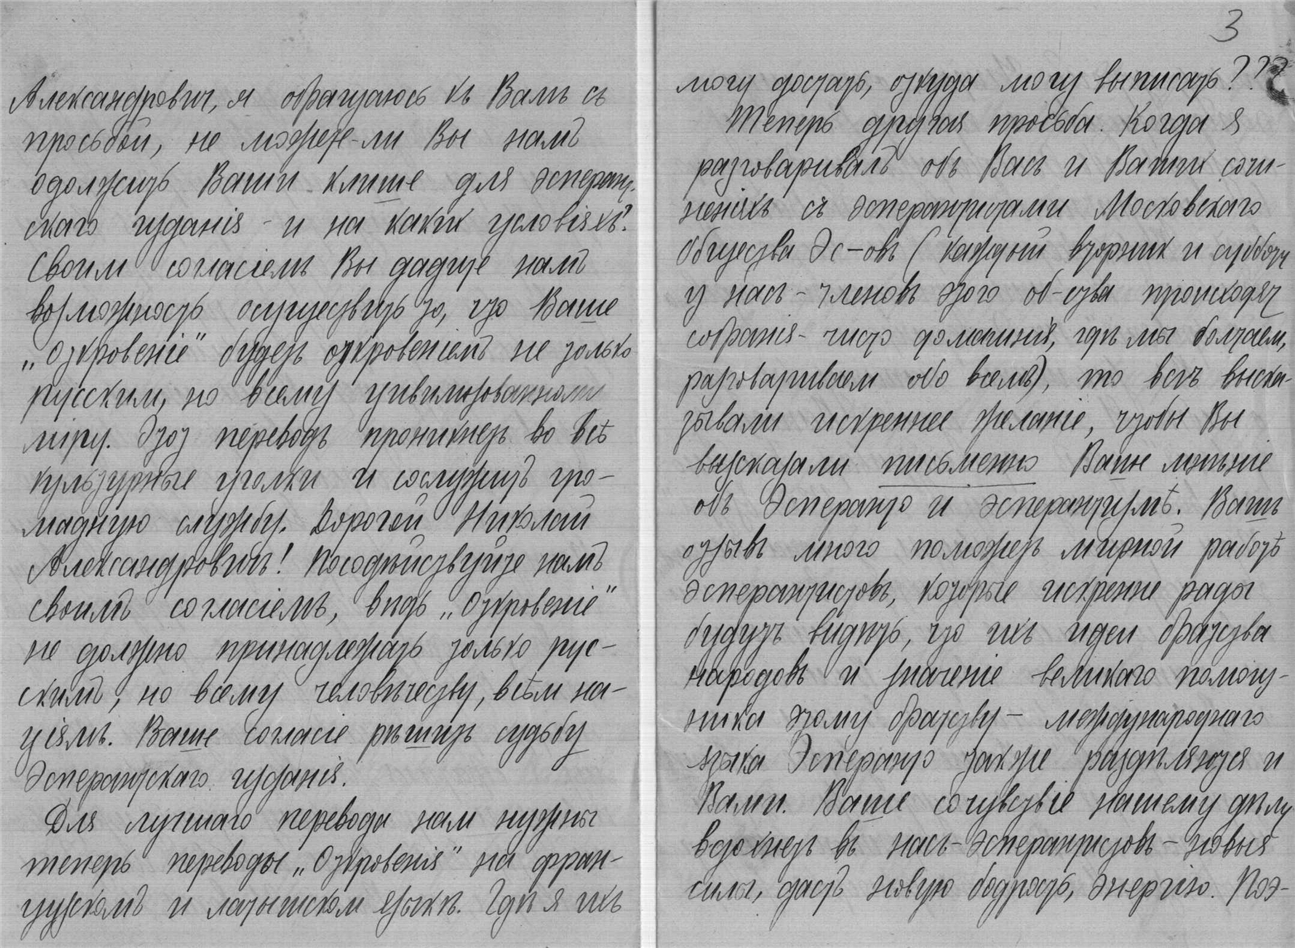 Александровичъ, я обращаюсь къ Вамъ съ
просьбой, не можете-ли Вы намъ
одолжить Ваши клише для эсперант-
скаго изданія - и на какихъ условіяхъ?
Своимъ согласіемъ Вы дадите намъ
возможность осуществить то, что Ваше
„Откровеніе" будетъ откровеніемъ не только
русскимъ, но всему цивилизованному
міру. Этотъ переводъ проникнетъ во всѣ
культурные уголки и сослужитъ гро-
мадную службу. Дорогой Николай
Александровичъ! Посодѣйствуйте намъ
своимъ согласіемъ, вѣдь „Откровеніе"
не должно принадлежать только рус-
скимъ, но всему человѣчеству, всѣмъ на-
ціямъ. Ваше согласіе рѣшитъ судьбу
Эсперантскаго изданія.
Для лучшаго перевода нам нужны
теперь переводы „Откровенія" на фран-
цузскомъ и латышском языкѣ. Гдѣ я ихъ
3
могу достать, откуда могу выписать???
Теперь другая просьба. Когда я
разговаривалъ объ Васъ и Вашихъ сочи-
неніяхъ съ эсперантистами Московскаго
Общества Эс-овъ (каждый вторник и субботу
у насъ - членовъ этого об-ства происходятъ
собранія - чисто домашнія, гдѣ мы болтаем,
разговариваем обо всемъ), то всѣ выска-
зывали искреннее желаніе, чтобы Вы
высказали письменно Ваше мнѣніе
объ Эсперанто и эсперантизмѣ. Вашъ
отзывъ много поможетъ мирной работѣ
эсперантистовъ, которые искренне рады
будутъ видѣть, что ихъ идеи братства
народовъ и значеніе великаго помощ-
ника этому братству - международнаго
языка Эсперанто также раздѣляются и
Вами. Ваше сочувствіе нашему дѣлу
вдохнетъ въ насъ - эсперантистовъ - новыя
силы, дастъ новую бодрость, энергію. Поэ-